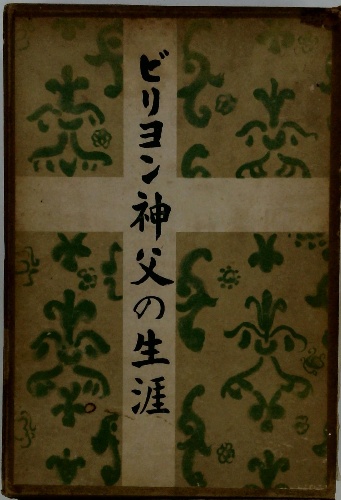 ビリヨン神父の生涯